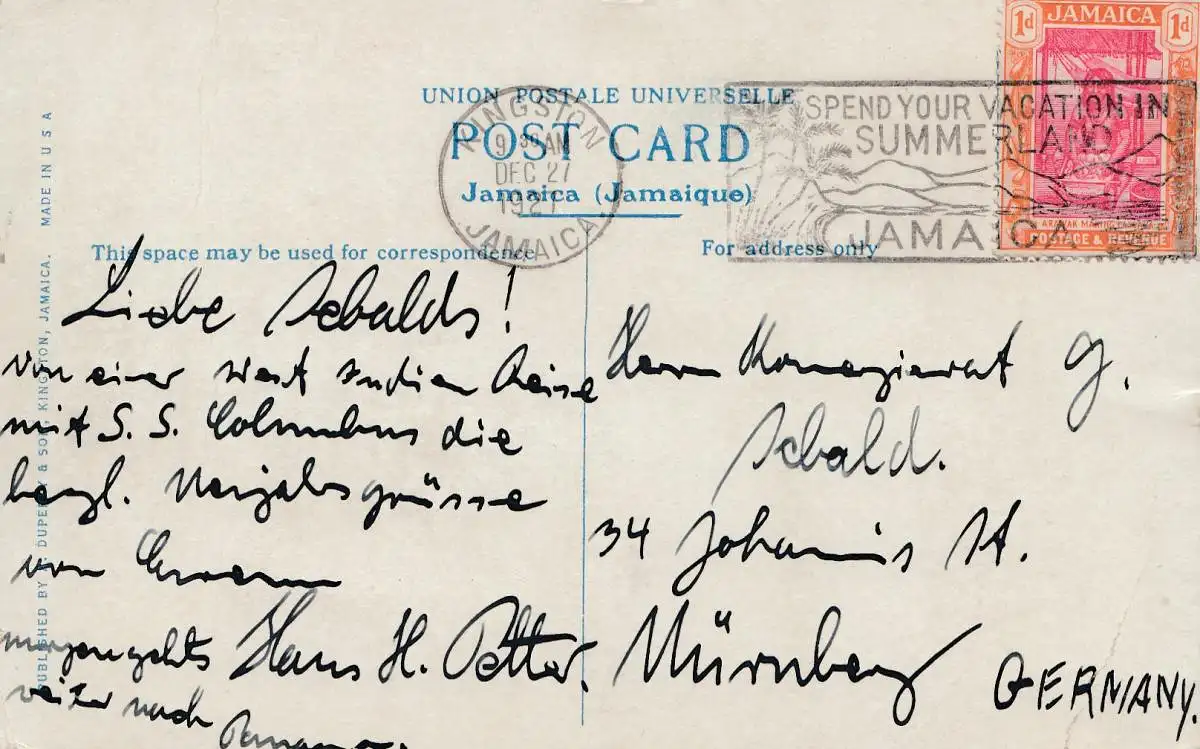 1d JAMAICA 1d
UNION POSTALE UNIVERSELLE
SPEND YOUR VACATION IN
SUMMERLAND
JAMAICA
POST CARD
Jamaica (Jamaique)
KINGSTON
9 30 AM
DEC 27
1927
JAMAICA
POSTAGE & REVENUE
This space may be used for correspondence
For address only
Liebe Sebalds!
von einer West Indien Reise
mit S. S. Columbus die
herzl. Neujahrsgrüsse
von Eurem
Hans H. Petter.
morgen gehts
weiter nach
Panama.
Herrn Komerzienrat G.
Sebald.
34 Johannis St.
Nürnberg
GERMANY.
PUBLISHED BY DUPERLY & SON, KINGSTON, JAMAICA. MADE IN U S A